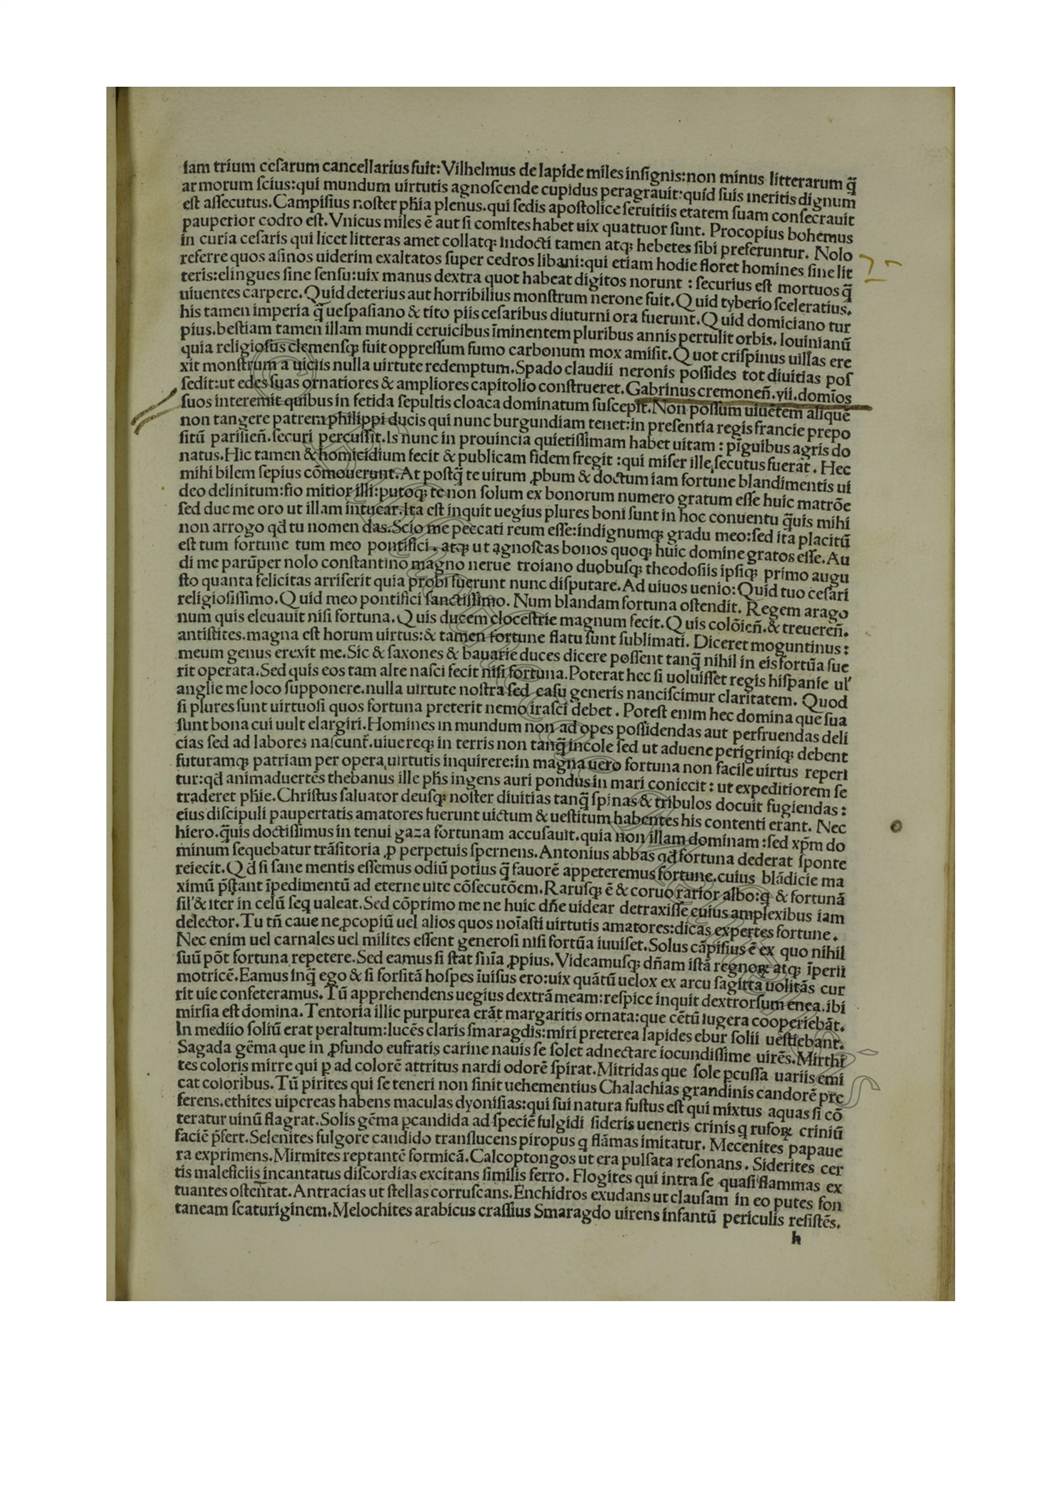 iam trium cęsarum cancellarius fuit:Vilhelmus de lapide miles insignis:non minus litterarum q̃
armorum scius:qui mundum uirtutis agnoscende cupidus peragrauit:quid suis meritis dignum
est assecutus.Campisius noster phīa plenus.qui sedis apostolice seruitiis etatem suam consecrauit
pauperior codro est.Vnicus miles ē aut si comites habet uix quattuor sunt. Procopius bohemus
in curia cesaris qui licet litteras amet collatqꝫ indocti tamen atqꝫ hebetes sibi preferuntur. Nolo
referre quos asinos uiderim exaltatos super cedros libani:qui etiam hodie floret homines sine lit
teris:elingues sine sensu:uix manus dextra quot habeat digitos norunt : securius est mortuos q̃
uiuentes carpere.Quid deterius aut horribilius monstrum nerone fuit.Quid tyberio sceleratius.
his tamen imperia q̃ uespasiano & tito piis cesaribus diuturniora fuerunt.Quid domiciano tur
pius.bestiam tamen illam mundi ceruicibus īminentem pluribus annis pertulit orbis. Iouinianū
quia religiosus clemensqꝫ fuit oppressum fumo carbonum mox amisit.Quot crispinus uillas ere
xit monstrum a uiciis nulla uirtute redemptum.Spado claudii neronis possides tot diuitias pos
sedit:ut edes suas ornatiores & ampliores capitolio construeret.Gabrinus cremoneñ.yii.domīos
suos interemit quibus in fetida sepultis cloaca dominatum suscepit.Non possum uiuētem aliquē
non tangere patrem philippi ducis qui nunc burgundiam tenet:in presentia regis francie prepo
sitū parisieñ.securi percussit.Is nunc in prouincia quietissimam habet uitam : pīguibus agris do
natus.Hic tamen & homicidium fecit & publicam fidem fregit :qui miser ille secutus fuerat. Hec
mihi bilem sepius cōmouerunt.At postq̃ te uirum ꝓbum & doctum iam fortune blandimentis ui
deo delinitum:fio mitior illi:putoqꝫ te non solum ex bonorum numero gratum esse huic matrōe
sed duc me oro ut illam intuear.Ita est inquit uegius plures boni sunt in hoc conuentu q̃uis mihi
non arrogo qd tu nomen das.Scio me peccati reum esse:indignumqꝫ gradu meo:sed ita placitū
est tum fortune tum meo pontifici.atqꝫ ut agnoscas bonos quoqꝫ huic domine gratos esse.Au
di me parūper nolo constantino magno nerue troiano duobusqꝫ theodosiis ipsiqꝫ primo augu
sto quanta felicitas arriserit quia probi fuerunt nunc disputare.Ad uiuos uenio:Quid tuo cesari
religiosissimo.Quid meo pontifici sanctissimo. Num blandam fortuna ostendit. Regem arago
num quis eleuauit nisi fortuna.Quis ducem clocestrie magnum fecit.Quis colōieñ.& treuereñ.
antistites.magna est horum uirtus:& tamen fortune flatu sunt sublimati. Diceret moguntinus:
meum genus erexit me.Sic & saxones & bauarie duces dicere possent tanq̃ nihil in eis fortūa fue
rit operata.Sed quis eos tam alte nasci fecit nisi fortuna.Poterat hec si uoluisset regis hispanie ul'
anglie me loco supponere.nulla uirtute nostra sed casu generis nanciscimur claritatem. Quod
si plures sunt uirtuosi quos fortuna preterit nemo irasci debet . Potest enim hec domina que sua
sunt bona cui uult elargiri.Homines in mundum non ad opes possidendas aut perfruendas deli
cias sed ad labores nascunt̃.uiuereqꝫ in terris non tanq̃ incole sed ut aduene perigriniqꝫ debent
futuramqꝫ patriam per opera uirtutis inquirere:in magna uero fortuna non facile uirtus reperi
tur:qd animaduertēs thebanus ille phs ingens auri pondus in mari coniecit : ut expeditiorem se
traderet phie.Christus saluator deusqꝫ noster diuitias tanq̃ spinas & tribulos docuit fugiendas :
eius discipuli paupertatis amatores fuerunt uictum & uestitum habentes his contenti erant. Nec
hiero.q̃uis doctissimus in tenui gaza fortunam accusauit.quia non illam dominam :sed xp̄m do
minum sequebatur trāsitoria ꝓ perpetuis spernens.Antonius abbas qd fortuna dederat sponte
reiecit.Qd si sane mentis essemus odiū potius q̃ fauorē appeteremus fortune.cuius blādicie ma
ximū p̄stant īpedimentū ad eterne uite cōsecutōem.Rarusqꝫ ē & coruo rarior albo:q & fortunā
sil'& iter in celū seq ualeat.Sed cōprimo me ne huic dñe uidear detraxisse cuius amplexibus iam
delector.Tu tñ caue ne ꝓcopiū uel alios quos noīasti uirtutis amatores:dicas expertes fortune.
Nec enim uel carnales uel milites essent generosi nisi fortūa iuuiset.Solus cāpisius ē ex quo nihil
suū pōt fortuna repetere.Sed eamus si stat snīa ꝓpius.Videamusqꝫ dñam istā regnoꝝ atqꝫ īperii
motricē.Eamus inq̃ ego & si forsitā hospes īuisus ero:uix quātū uelox ex arcu sagitta uolitās cur
rit uie confeteramus.Tū apprehendens uegius dextrā meam:respice inquit dextrorsum enea.ibi
mirsia est domina.Tentoria illic purpurea erāt margaritis ornata:que cētū iugera cooperiebāt.
In mediio soliū erat peraltum:lucēs claris smaragdis:miri preterea lapides ebur solii uestiebant.
Sagada gēma que in ꝓfundo eufratis carine nauis se solet adnectare iocundissime uirēs.Mirthi
tes coloris mirre qui p ad colorē attritus nardi odorē spirat.Mitridas que sole pcussa uariis emi
cat coloribus.Tū pirites qui se teneri non sinit uehementius Chalachias grandinis candorē pre
ferens.ethites uipereas habens maculas dyonisias:qui sui natura fustus est qui mixtus aquas si cō
teratur uinū flagrat.Solis gēma pcandida ad speciē fulgidi sideris ueneris crinis q rufoꝝ criniū
faciē p̄fert.Selenites fulgore candido translucens piropus q flāmas imitatur. Mecenites papaue
ra exprimens.Mirmites reptantē formicā.Calcoptongos ut era pulsata resonans. Siderites cer
tis maleficiis incantatus discordias excitans similis ferro.Flogites qui intra se quasi flammas ex
tuantes ostentat.Antracias ut stellas corruscans.Enchidros exudans ut clausam in eo putes fon
taneam scaturiginem.Melochites arabicus crassius Smaragdo uirens infantū periculis resistēs.
h